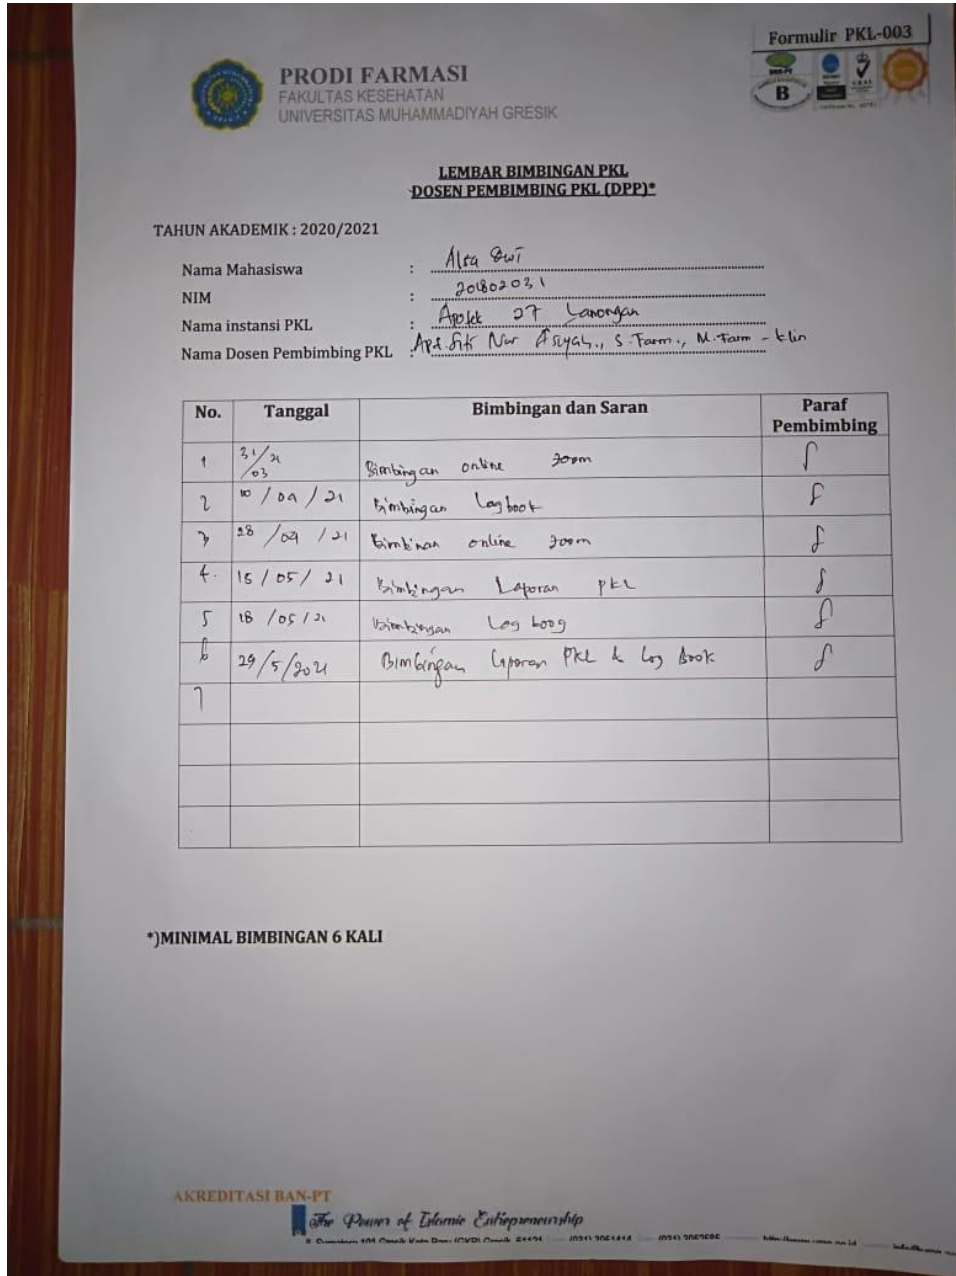 Formulir PKL-003
PRODI FARMASI
FAKULTAS KESEHATAN
UNIVERSITAS MUHAMMADIYAH GRESIK
B
LEMBAR BIMBINGAN PKL
DOSEN PEMBIMBING PKL (DPP)*
TAHUN AKADEMIK : 2020/2021
Nama Mahasiswa : Alfa Dwi
NIM : 201802031
Nama instansi PKL : Apotek 27 Lamongan
Nama Dosen Pembimbing PKL : Apt. Siti Nur Asiyah., S. Farm., M. Farm - klin
No. Tanggal Bimbingan dan Saran Paraf Pembimbing
1 31/21 /03 Bimbingan online zoom
2 10/04/21 Bimbingan Logbook
3 28/04/21 Bimbinan online zoom
4. 15/05/21 Bimbingan Laporan PKL
5 18/05/21 Bimbingan Log boog
6 29/5/2021 Bimbingan Laporan PKL & Log Book
7
*)MINIMAL BIMBINGAN 6 KALI
AKREDITASI BAN-PT
The Power of Islamic Entrepreneurship